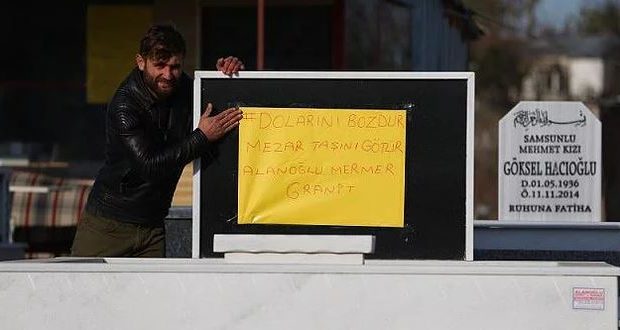 #DOLARINI BOZDUR
MEZAR TAŞINI GÖTÜR
ALANOĞLU MERMER
GRANİT
SAMSUNLU
MEHMET KIZI
GÖKSEL HACIOĞLU
D.01.05.1936
Ö.11.11.2014
RUHUNA FATİHA
ALANOĞLU